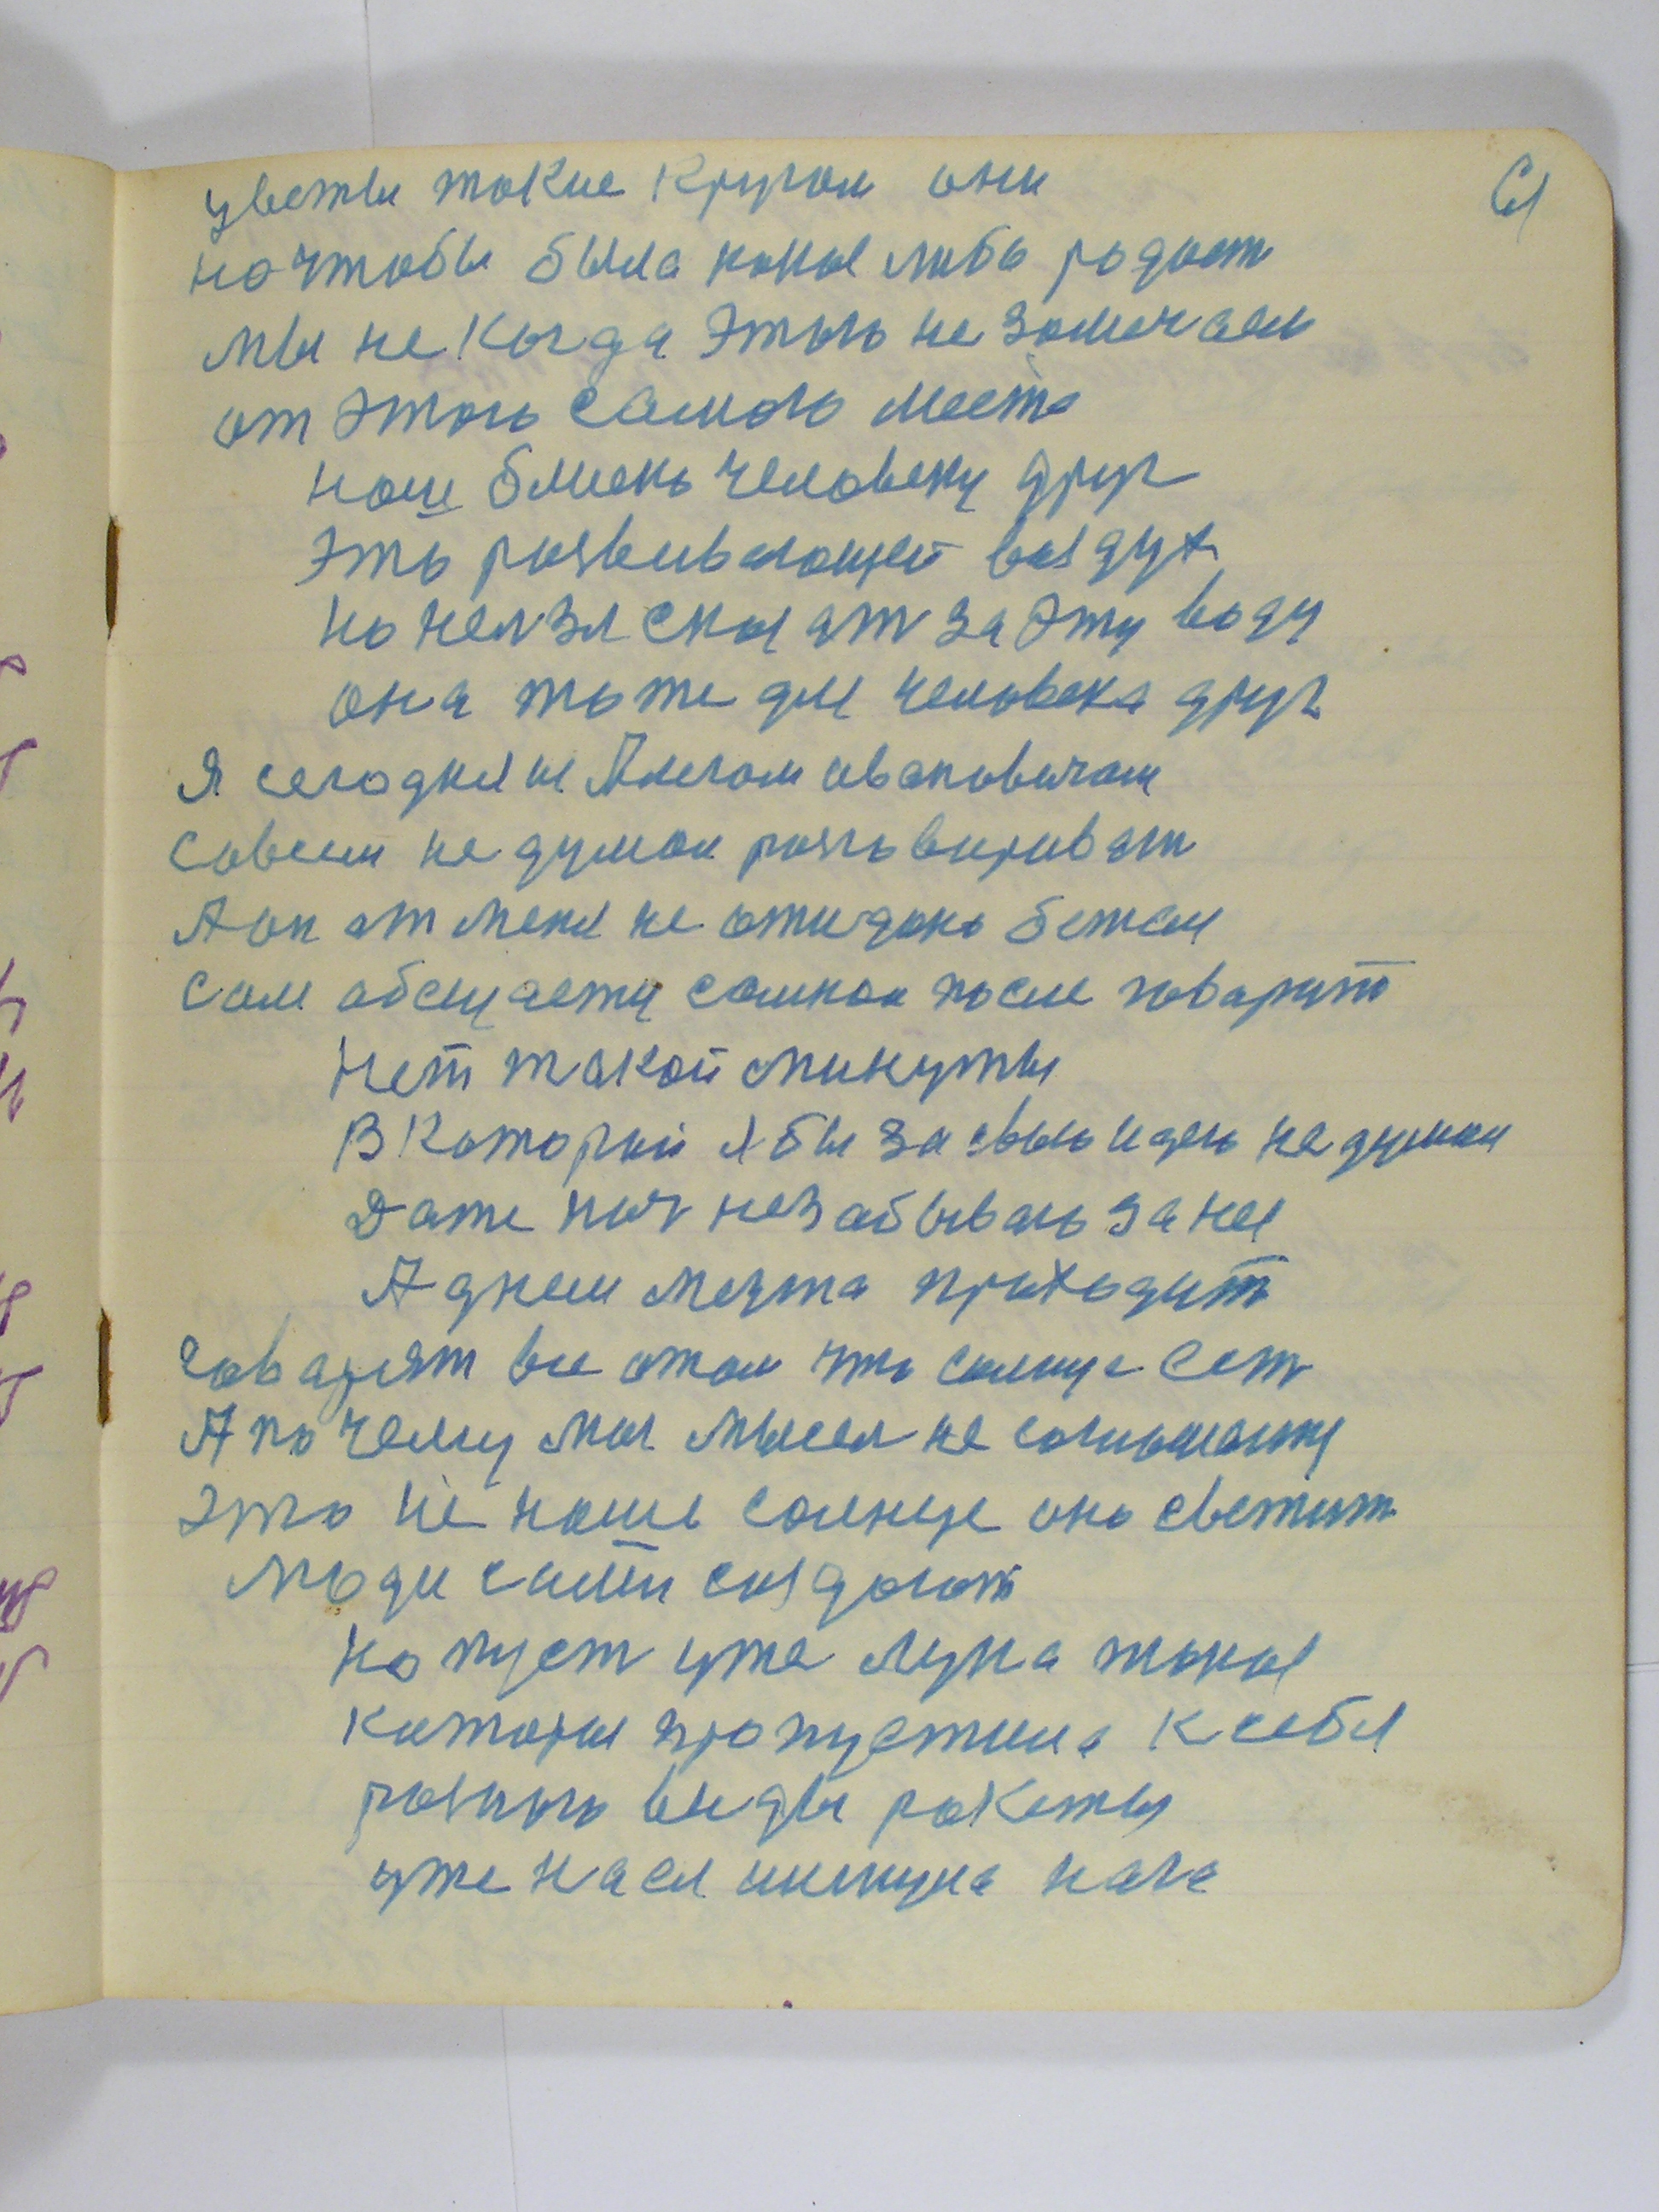 цветы такие кругом они
но чтобы была какая либо радост
мы не когда этого не замечаем
от этого самого места
наш близкь человеку друг
это развивающей воздух
но нелзя сказат за эту воду
она тоже для человека друг
Я сегодня и Алегом ивановичам
совсем не думал разговириват
А он от меня не ожидано бежал
сам абсщаетц самной после говарить
Нет такой минуты
В Которой я бы за свою идею не думал
Даже ноч не забываю за нея
А днем мечта приходит
говарят все отом что солнце Сят
А по чему мы мысел не
это не наше солнце оно светит
люди сами создают
но пуст уже луна такая
каторая пропустила к себя
разного виды ракеты
уже нася нога